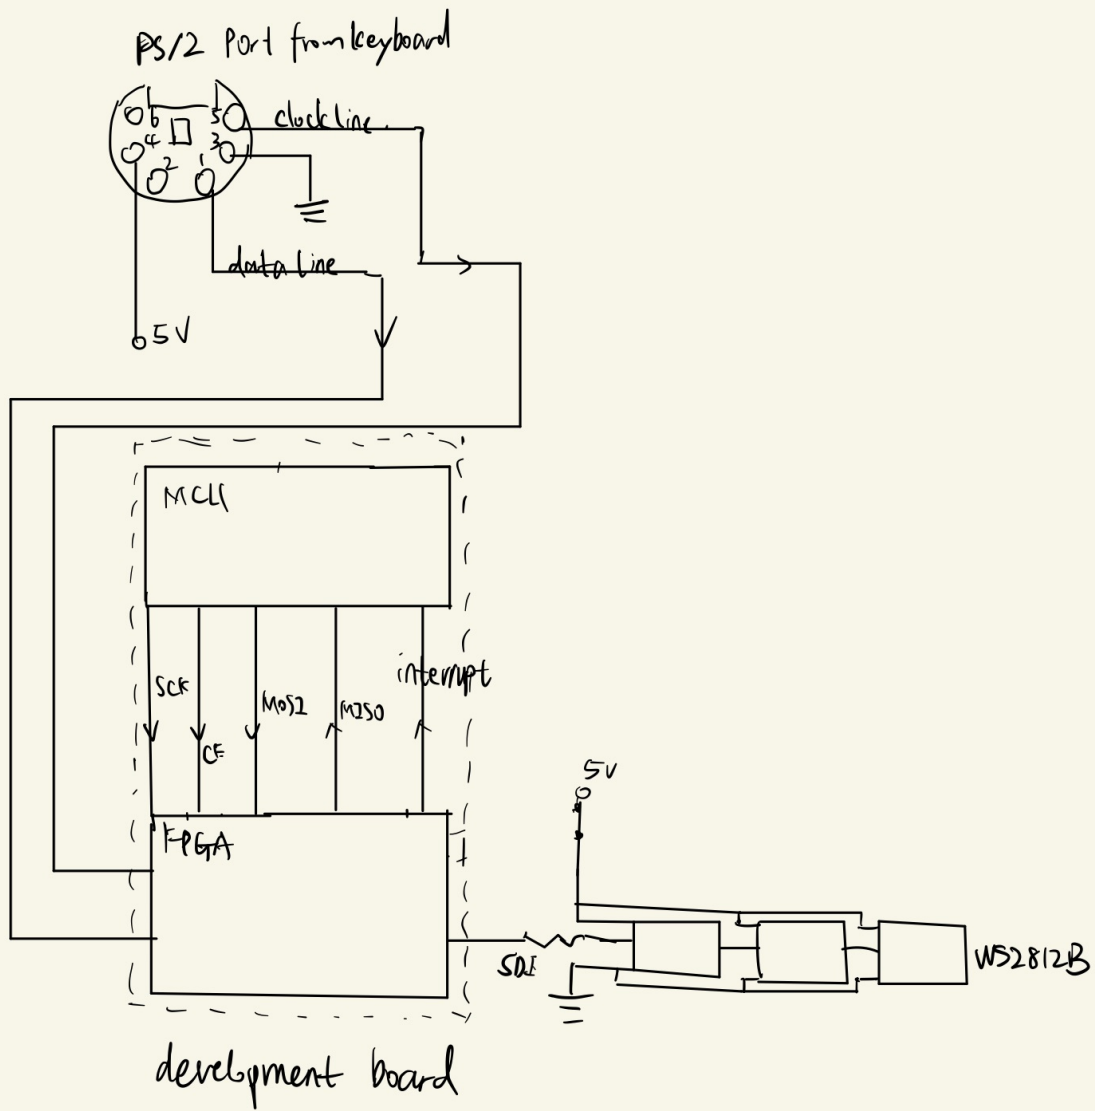 PS/2 Port from keyboard
6
5
clock line
4
3
2
1
data line
5V
MCU
SCK
CE
MOSI
MISO
interrupt
FPGA
5V
SDI
WS2812B
development board